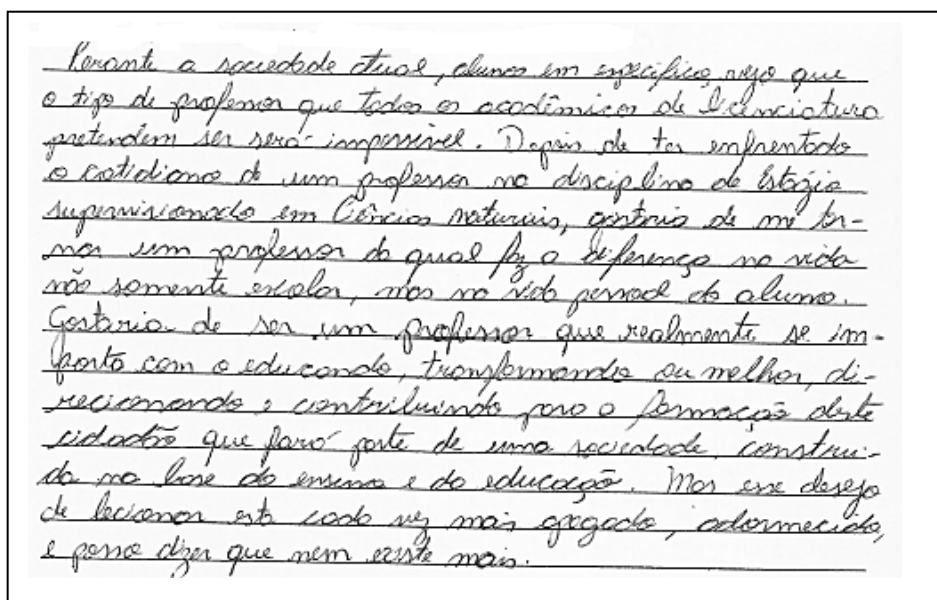 Perante a sociedade atual, alunos em específico, vejo que
o tipo de professor que todos os acadêmicos de licenciatura
pretendem ser será impossível. Depois de ter enfrentado
o cotidiano de um professor na disciplina de Estágio
supervisionado em Ciências naturais, gostaria de me tor-
nar um professor do qual faz a diferença na vida
não somente escolar, mas na vida pessoal do aluno.
Gostaria de ser um professor que realmente se im-
porta com o educando, transformando ou melhor, di-
recionando e contribuindo para a formação deste
cidadão que fará parte de uma sociedade, construi-
da na base do ensino e da educação. Mas esse desejo
de lecionar está cada vez mais apagado, adormecido,
e posso dizer que nem existe mais.